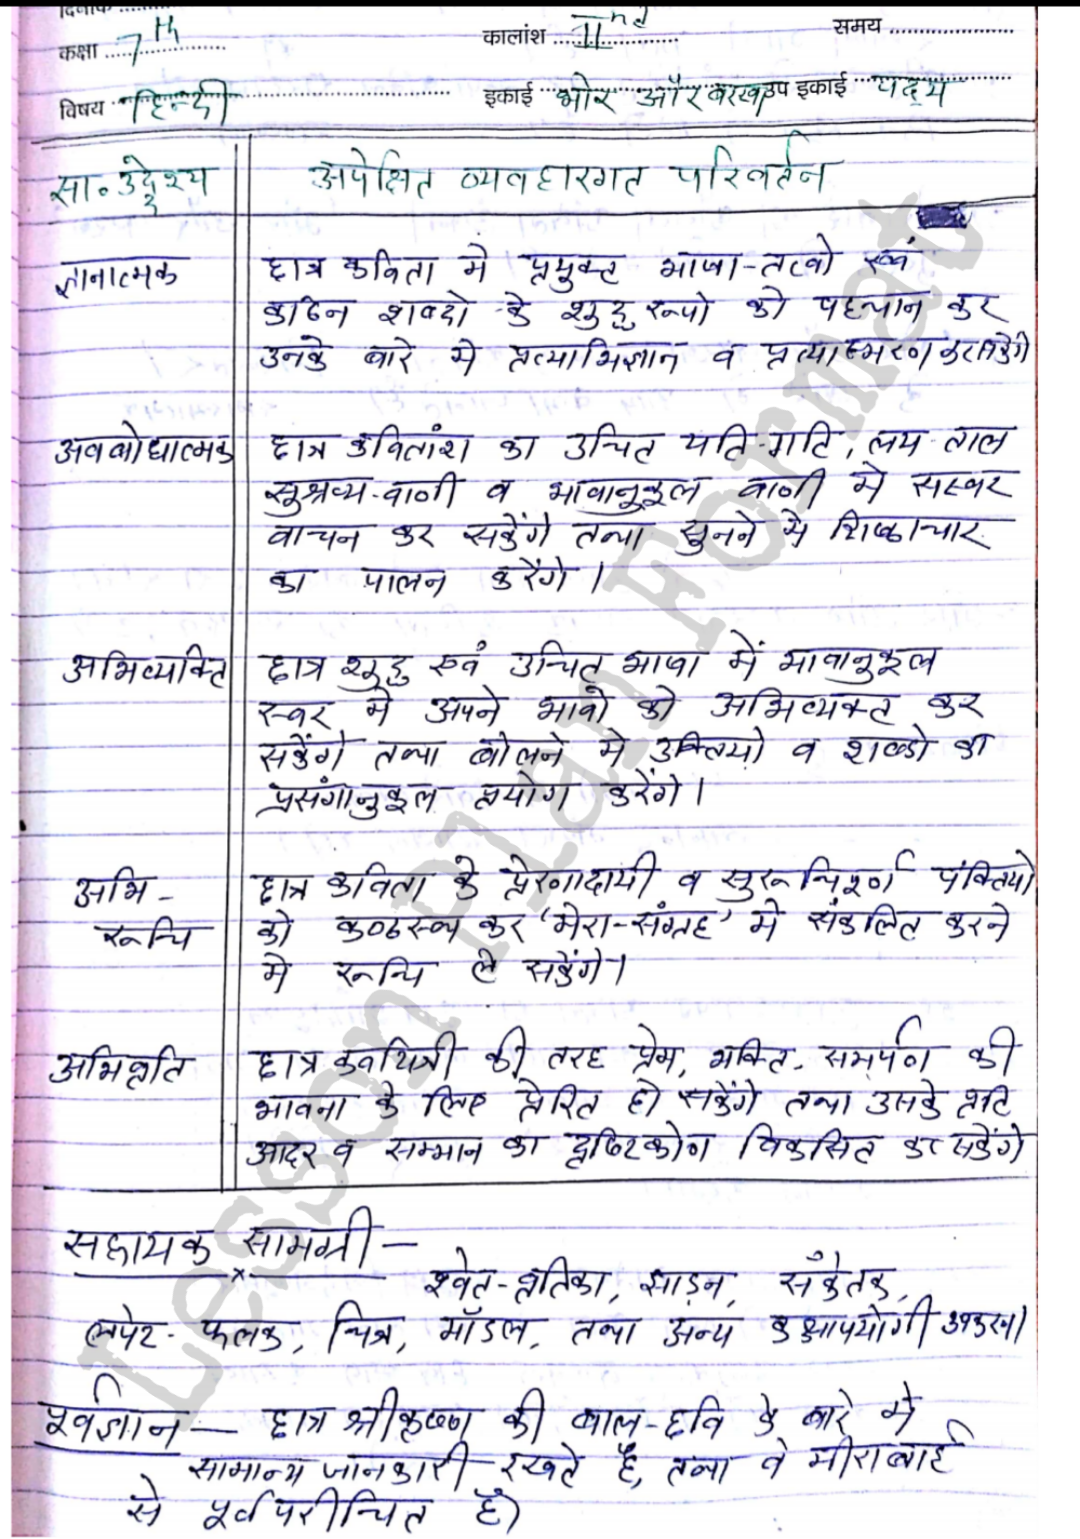 दिनांक
कक्षा 7th कालांश IInd समय
विषय हिन्दी इकाई भोर और बरखा उप इकाई पद्य
सा॰ उद्देश्य अपेक्षित व्यवहारगत परिवर्तन
ज्ञानात्मक छात्र कविता मे प्रयुक्त भाषा-तत्वो एवं
कठिन शब्दो के शुद्ध रूपो को पहचान कर
उनके बारे मे प्रत्याभिज्ञान व प्रत्यास्मरण कर सकेंगे
अवबोधात्मक छात्र कवितांश का उचित यति-गति, लय-ताल
सुश्रव्य-वाणी व भावानुकूल वाणी मे सस्वर
वाचन कर सकेंगे तथा सुनने मे शिष्टाचार
का पालन करेंगे।
अभिव्यक्ति छात्र शुद्ध एवं उचित भाषा में भावानुकूल
स्वर मे अपने भावो को अभिव्यक्त कर
सकेंगे तथा बोलने मे उक्तियो व शब्दो का
प्रसंगानुकूल प्रयोग करेंगे।
अभि- छात्र कविता के प्रेरणादायी व सुरूचिपूर्ण पंक्तियो
रूचि को कण्ठस्थ कर 'मेरा-संग्रह' मे संकलित करने
मे रूचि ले सकेंगे।
अभिवृति छात्र कवयित्री की तरह प्रेम, भक्ति, समर्पण की
भावना के लिए प्रेरित हो सकेंगे तथा उसके प्रति
आदर व सम्मान का दृष्टिकोण विकसित कर सकेंगे
सहायक सामग्री –
श्वेत-वर्तिका, झाड़न, संकेतक,
लपेट-फलक, चित्र, मॉडल, तथा अन्य कक्षोपयोगी उपकरण।
पूर्वज्ञान – छात्र श्रीकृष्ण की बाल-छवि के बारे मे
सामान्य जानकारी रखते है, तथा वे मीराबाई
से पूर्वपरीचित है।
Lesson Plan Format